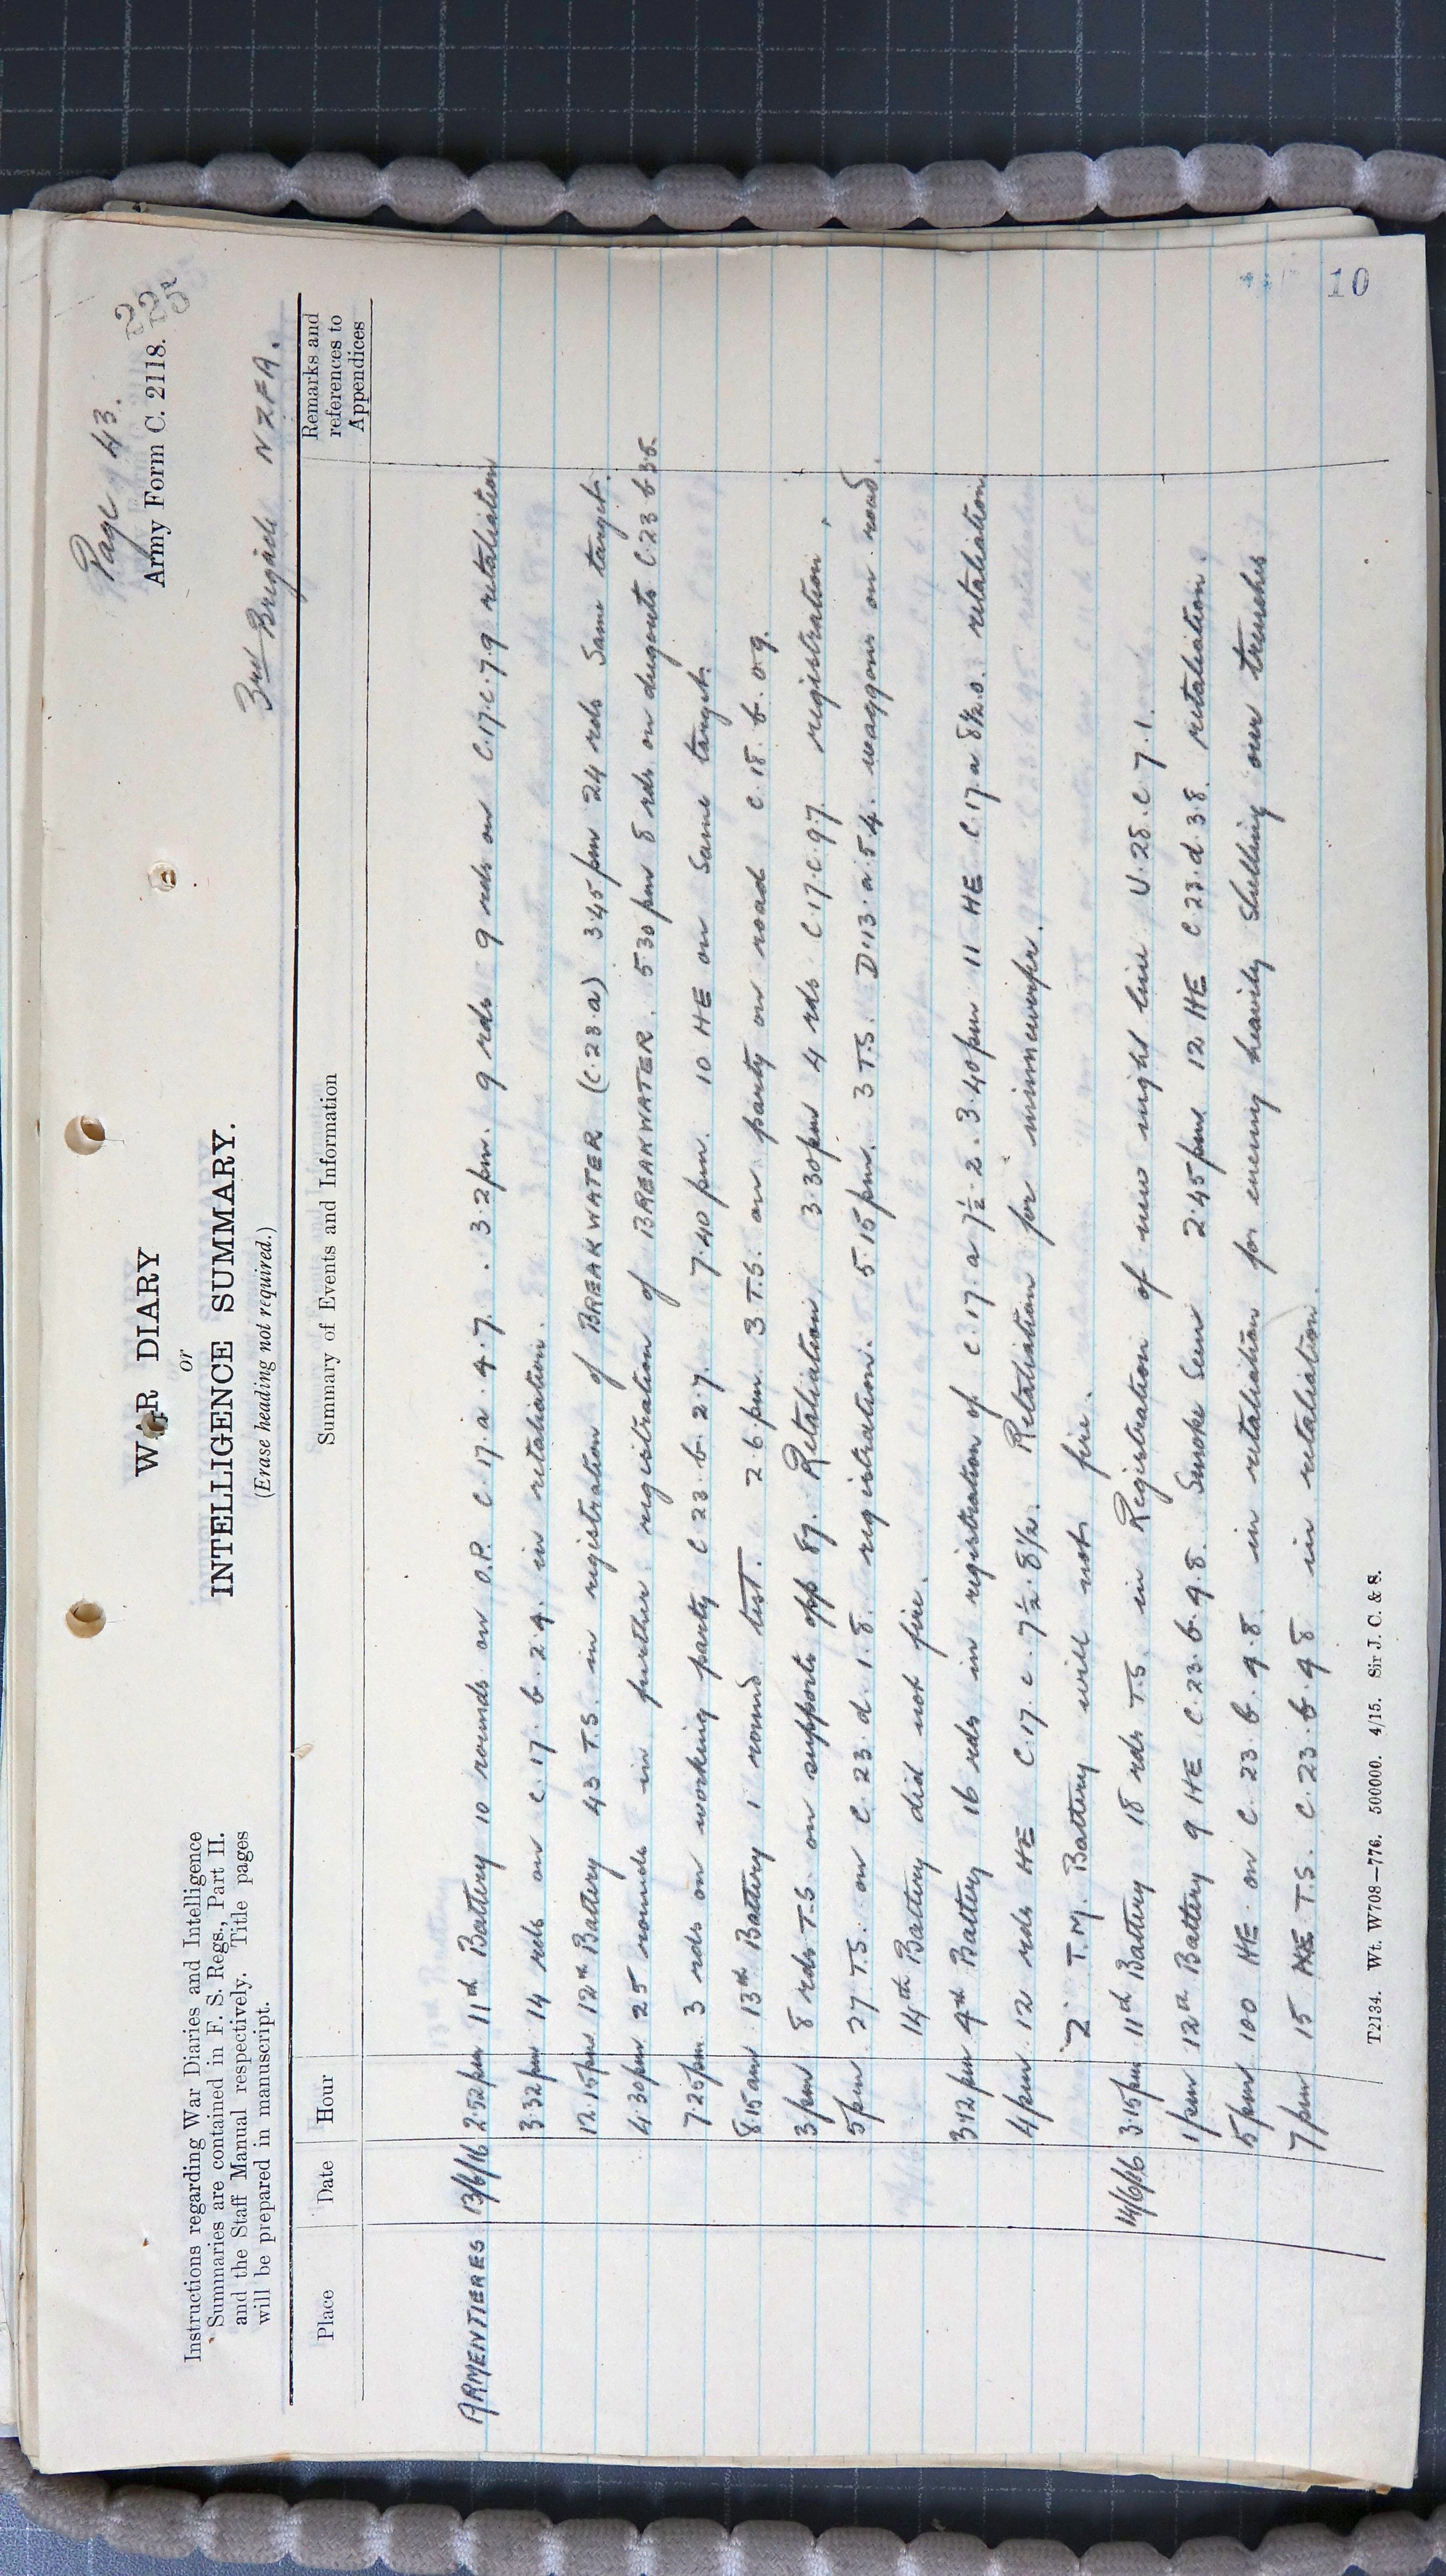 Page 43.
Army Form C. 2118.
225
WAR DIARY
or
INTELLIGENCE SUMMARY.
(Erase heading not required.)
3rd Brigade NZFA.
Instructions regarding War Diaries and Intelligence
Summaries are contained in F. S. Regs., Part II.
and the Staff Manual respectively. Title pages
will be prepared in manuscript.
Place Date Hour Summary of Events and Information Remarks and references to Appendices
ARMENTIERES 13/6/16 2.52pm 11th Battery 10 rounds on O.P. C.17.a.4.7. 3.2pm. 9 rds 9 rds on C.17.c.7.9 retaliation
3.32pm 14 rds on C.17.b.2.9. in retaliation.
12.15pm 12th Battery 43 T.S. in registration of BREAKWATER (C.23.a) 3.45pm 24 rds Same target.
4.30pm 25 rounds in further registration of BREAKWATER. 5.30pm 8 rds on dugouts C.23 b 3.5.
7.25pm 3 rds on working party C 23.b.2.7. 7.40pm. 10 HE on Same target.
8.15am 13th Battery 1 round test. 2.6.pm. 3 T.S. on party on road C.18.b.0.9.
3pm 8 rds T.S. on supports opp 89. Retaliation 3.30pm 4 rds. C.17.c.9.7. registration.
5pm 27 T.S. on C.23.d.1.8. registration. 5.15pm. 3 T.S. D.13.a.5.4. waggons on road.
14th Battery did not fire.
3.12pm 4th Battery 16 rds in registration of C 17.a 7½.2. 3.40pm 11 HE C.17.a 8½.0. retaliation
4pm 12 rds HE C.17.c.7½.8½. Retaliation for minnewerfer.
Z. T.M. Battery will not fire.
14/6/16 3.15pm 11th Battery 18 rds T.S. in Registration of new night line U.28.c.7.1.
1pm 12th Battery 9 HE C.23.b.9.8. Smoke Seen 2.45pm. 12 HE C.23.d.3.8. retaliation.
5pm 100 HE on C.23.b.9.8. in retaliation for enemy heavily shelling our trenches
7pm 15 HE T.S. C.23.b.9 8 in retaliation.
T2134. Wt. W708—776. 500000. 4/15. Sir J. C. & S.
10